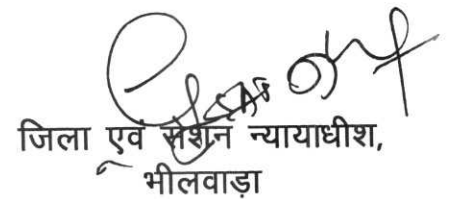 जिला एवं सेशन न्यायाधीश,
भीलवाड़ा